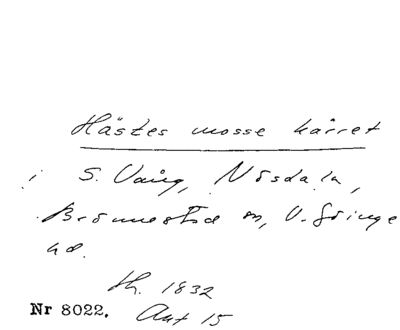 Hästes mosse kärret
i S. Vång, Nösdala,
Brönnestad sn, V. Göinge
hd.
th. 1832
Nr 8022. Akt 15